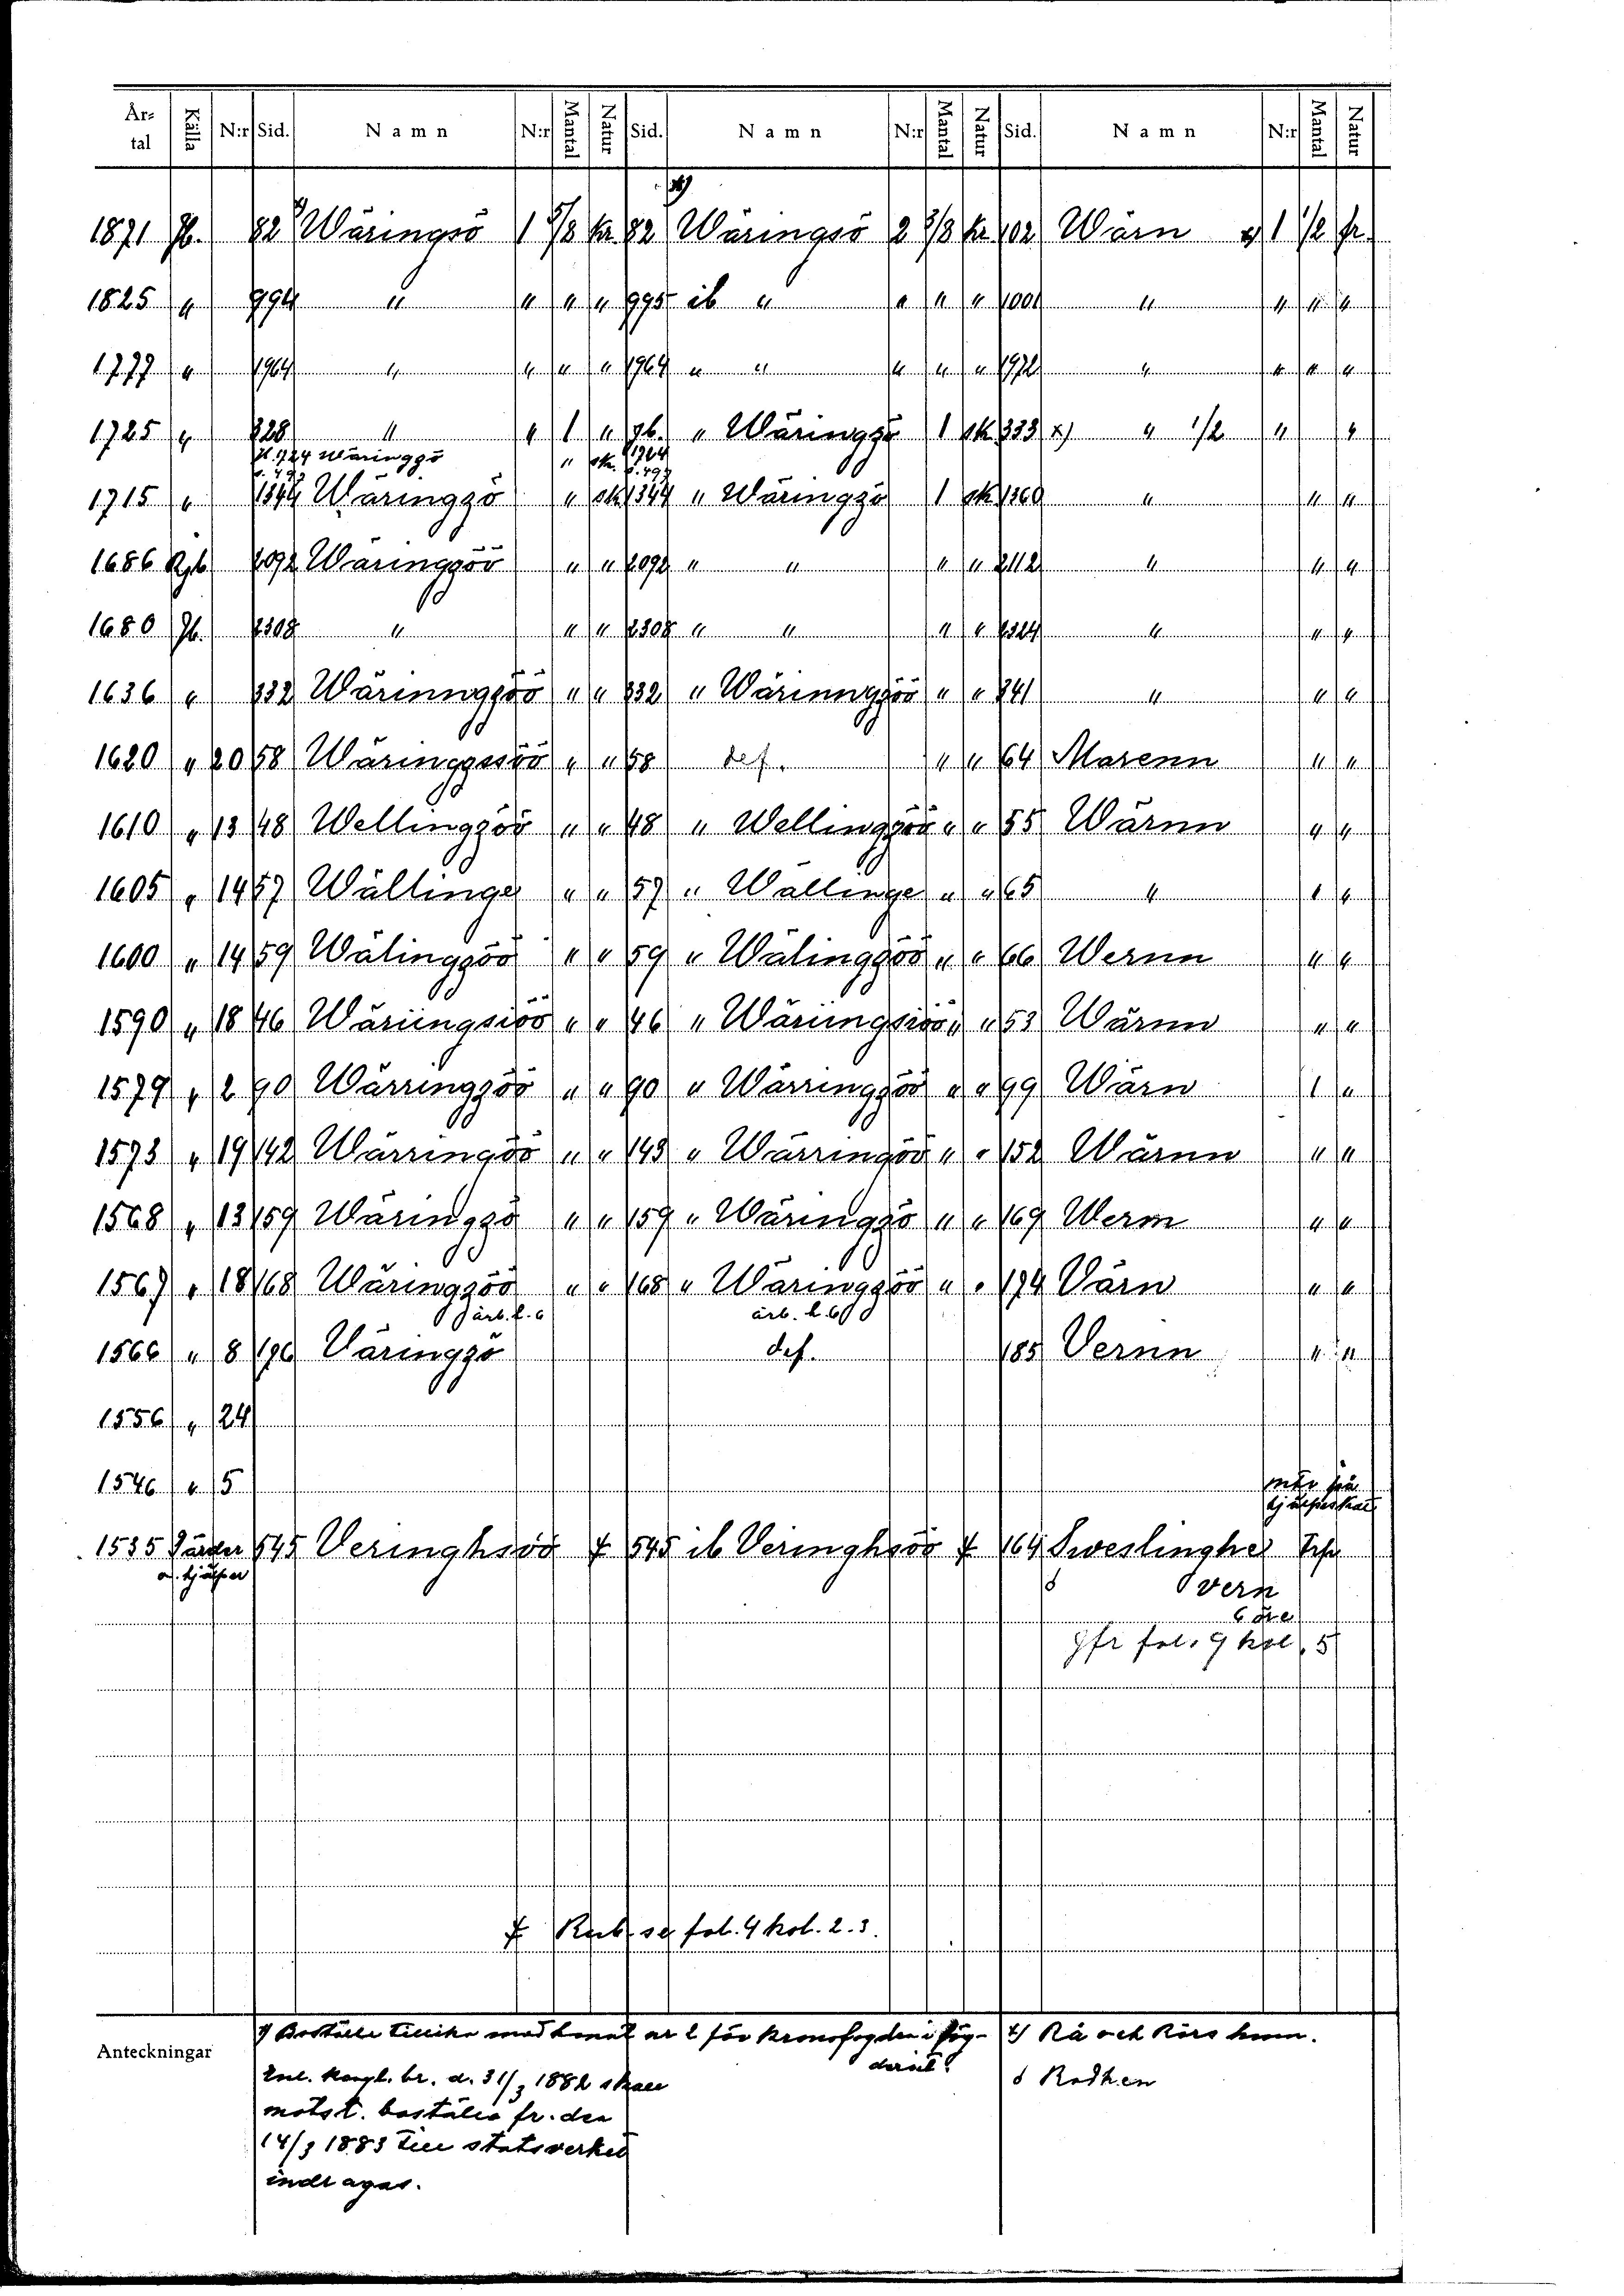 År-tal Källa N:r Sid. Namn N:r Mantal Natur Sid. Namn N:r Mantal Natur Sid. Namn N:r Mantal Natur
1871 Jb. 82 Wäringsö 1 5/8 kr 82 Wäringsö 2 3/8 kr 102 Wärn x) 1 1/2 fr.
1825 " 994 " " " " 995 ib " " " " 1001 " " " "
1777 " 1964 " " " " 1964 " " " " " 1972 " " " "
1725 " 328 " " 1 " Jb. " Wäringzö 1 sk 333 x) " 1/2 " "
Jb. 1724 Wäringzö " sk. 1724
s. 497 s. 497
1715 " 1344 Wäringzö " sk 1344 " Wäringzö 1 sk 1360 " " "
1686 Rjb 2092 Wäringzöö " " 2092 " " " " 2112 " " "
1680 Jb. 2308 " " " 2308 " " " " 2324 " " "
1636 " 332 Wärinngzöö " " 332 " Wärinngzöö " " 341 " " "
1620 " 20 58 Wäringgssöö " " 58 def. " " 64 Marenn " "
1610 " 13 48 Wellingzöö " " 48 " Wellingzöö " " 55 Wärnn " "
1605 " 14 57 Wällinge " " 57 " Wällinge " " 65 " 1 "
1600 " 14 59 Wälingzöö " " 59 " Wälingzöö " " 66 Wernn " "
1590 " 18 46 Wäriingsiöö " " 46 " Wäriingsiöö " " 53 Wärnn " "
1579 " 2 90 Wärringzöö " " 90 " Wärringzöö " " 99 Wärn 1 "
1573 " 19 142 Wärringöö " " 143 " Wärringöö " " 152 Wärnn " "
1568 " 13 159 Wäringzö " " 159 " Wäringzö " " 169 Werm " "
1567 " 18 168 Wäringzöö " " 168 " Wäringzöö " " 174 Värn " "
ärb. l. 6 ärb. l. 6
1566 " 8 196 Väringzö def. 185 Vernn " "
1556 " 24
1546 " 5
mtr frä
hjälpeskat
1535 Gärder 545 Veringhsöö ⨍ 545 ib Veringhsöö ⨍ 164 Sweslinghe
o. hjälper δ vern
6 öre
Jfr fol. 9 kol. 5
⨍ Rub. se fol. 4 kol. 2. 3.
Anteckningar
Boställe tillika med hemat nr 2 för kronofogden i fög-
deriet.
Enl. kongl. br. d. 31/3 1882 skall
motst. boställe fr. den
14/3 1883 till statsverket
indragas.
x) Rå och Rörs hemn.
δ Rodhen